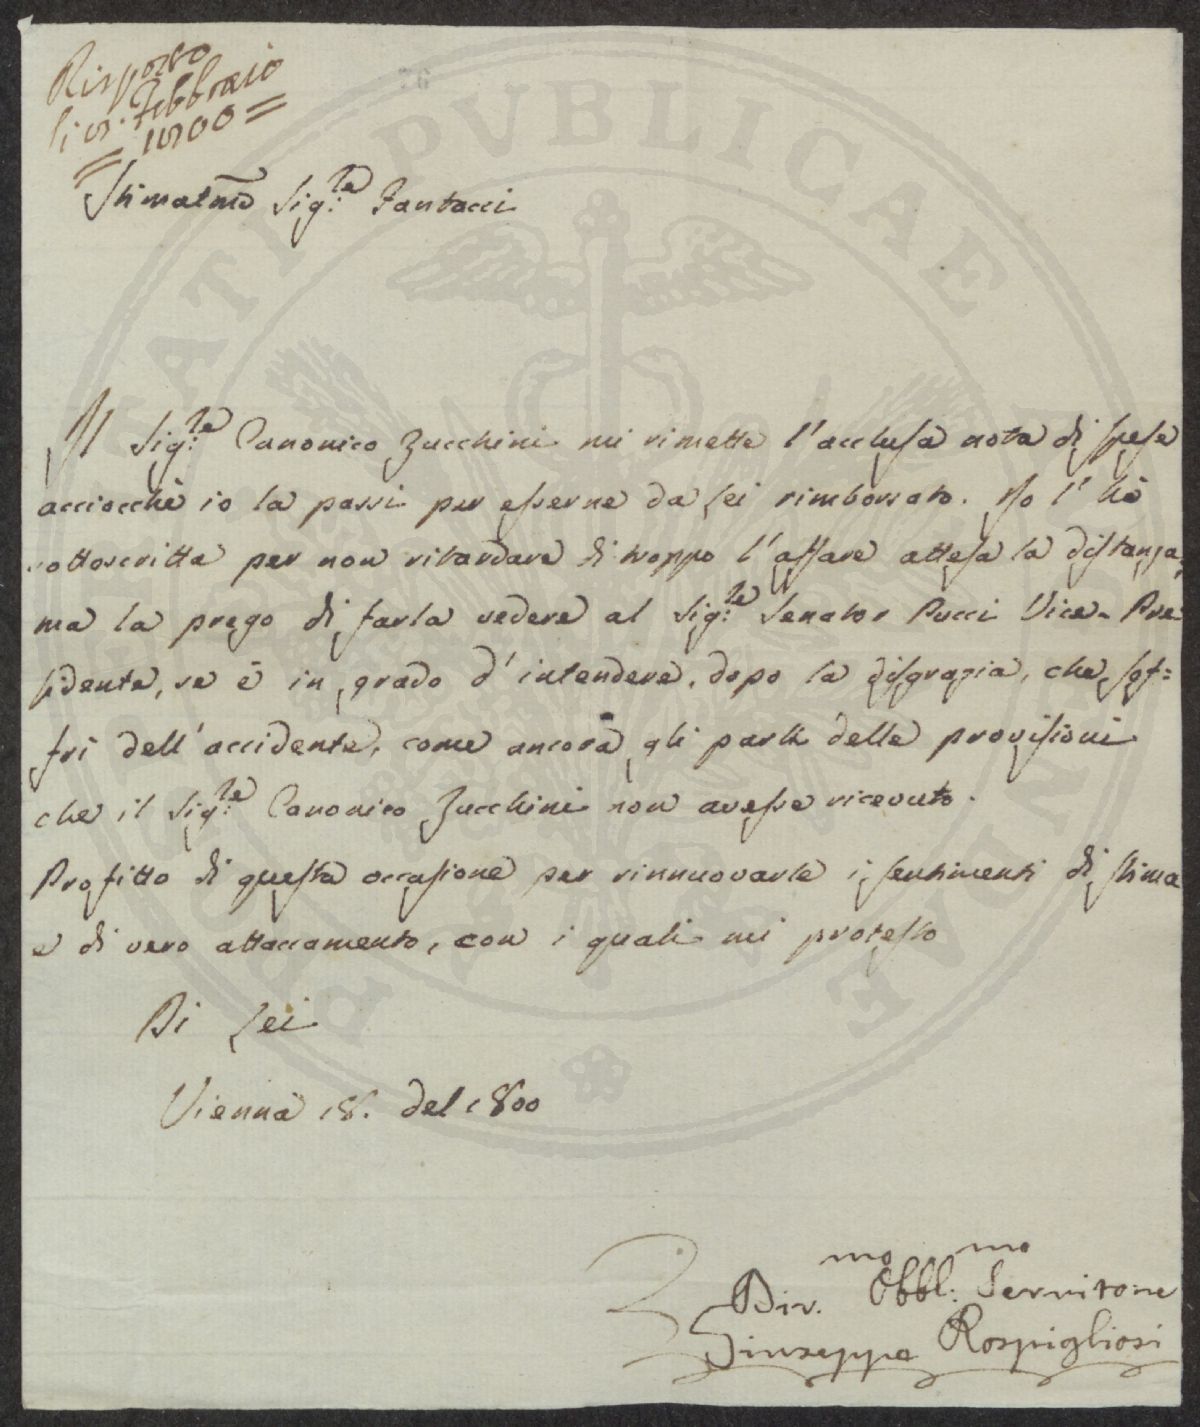 Risposto
li 8. Febbraio
1800
Stimatmo Sig:re Fantacci
Il Sig:re Canonico Zucchini mi rimette l'acclusa nota di spese
acciocchè io la passi per esserne da Lei rimborsato. Io l'hò
sottoscritta per non ritardare di troppo l'affare attesa la distanza,
ma la prego di farla vedere al Sig:re Senator Pucci Vice-Pre
sidente, se è in grado d'intendere, dopo la disgrazia, che sof=
frì dell'accidente, come ancora gli parli delle provisioni
che il Sig:re Canonico Zucchini non avesse ricevuto.
Profitto di questa occasione per rinnuovarle i sentimenti di stima
e di vero attaccamento, con i quali mi protesto
Di Lei
Vienna 18. del 1800
Div.mo Obbl:mo Servitore
Giuseppe Rospigliosi